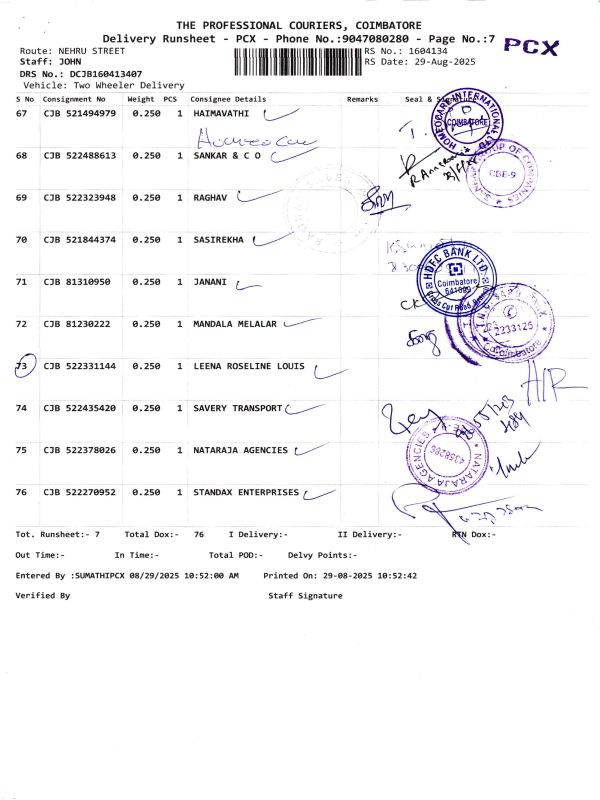 THE PROFESSIONAL COURIERS, COIMBATORE
Delivery Runsheet - PCX - Phone No.:9047080280 - Page No.:7
PCX
Route: NEHRU STREET RS No.: 1604134
Staff: JOHN RS Date: 29-Aug-2025
DRS No.: DCJB160413407
Vehicle: Two Wheeler Delivery
S No Consignment No Weight PCS Consignee Details Remarks Seal & Signature
67 CJB 521494979 0.250 1 HAIMAVATHI
HOMEOCARE INTERNATIONAL COIMBATORE
68 CJB 522488613 0.250 1 SANKAR & C O
GROUP OF COMPANIES CBE-9
69 CJB 522323948 0.250 1 RAGHAV
70 CJB 521844374 0.250 1 SASIREKHA
HDFC BANK LTD.
Coimbatore
71 CJB 81310950 0.250 1 JANANI
72 CJB 81230222 0.250 1 MANDALA MELALAR
2233125
Coimbatore
73 CJB 522331144 0.250 1 LEENA ROSELINE LOUIS
74 CJB 522435420 0.250 1 SAVERY TRANSPORT
75 CJB 522378026 0.250 1 NATARAJA AGENCIES
NATARAJA AGENCIES 4358286
76 CJB 522270952 0.250 1 STANDAX ENTERPRISES
Tot. Runsheet:- 7 Total Dox:- 76 I Delivery:- II Delivery:- RTN Dox:-
Out Time:- In Time:- Total POD:- Delvy Points:-
Entered By :SUMATHIPCX 08/29/2025 10:52:00 AM Printed On: 29-08-2025 10:52:42
Verified By Staff Signature